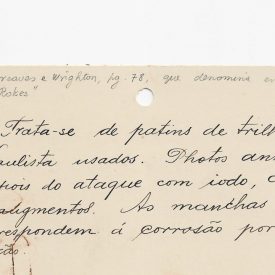 reaves e Wrighton, pg. 78, que denomina en
Rokes"
Trata-se de patins de tril
aulista usados. Photos an
ois do ataque com iodo,
augmentos. As manchas
respondem á corrosão por
ão.